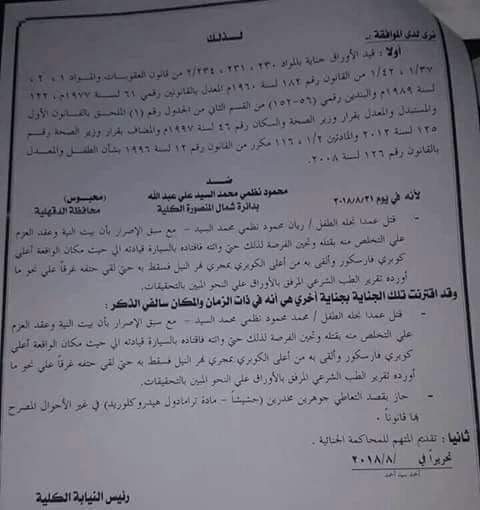 نرى لدى الموافقة :-
لذلك
أولا : قيد الأوراق جناية بالمواد ٢٣٠ ، ٢٣١ ، ٢/٢٣٤ من قانون العقوبات والمواد ١ ، ٢ ،
١/٣٧ ، ١/٤٢ من القانون رقم ١٨٢ لسنة ١٩٦٠م المعدل بالقانونين رقمي ٦١ لسنة ١٩٧٧م ، ١٢٢
لسنة ١٩٨٩م والبندين رقمي (٥٦-١٥٢) من القسم الثاني من الجدول رقم (١) الملحق بالقانون الأول
والمستبدل والمعدل بقرار وزير الصحة والسكان رقم ٤٦ لسنة ١٩٩٧م والمضاف بقرار وزير الصحة رقم
١٢٥ لسنة ٢٠١٢ والمادتين ١/٢ ، ١١٦ مكرر من القانون رقم ١٢ لسنة ١٩٩٦ بشأن الطفل والمعدل
بالقانون رقم ١٢٦ لسنة ٢٠٠٨.
ضد
محمود نظمي محمد السيد علي عبدالله (محبوس)
لأنه في يوم ٢٠١٨/٨/٢١ بدائرة شمال المنصورة الكلية محافظة الدقهلية
- قتل عمدا نجله الطفل / ريان محمود نظمي محمد السيد – مع سبق الإصرار بأن بيت النية وعقد العزم
علي التخلص منه بقتله وتحين الفرصة لذلك حتى واتته فاقتاده بالسيارة قيادته الي حيث مكان الواقعة أعلي
كوبري فارسكور وألقى به من أعلى الكوبري بمجري نهر النيل فسقط به حتى لقي حتفه غرقاً علي نحو ما
أورده تقرير الطب الشرعي المرفق بالأوراق علي النحو المبين بالتحقيقات.
وقد اقترنت تلك الجناية بجناية أخري هي أنه في ذات الزمان والمكان سالفي الذكر :
- قتل عمدا نجله الطفل / محمد محمود نظمي محمد السيد – مع سبق الإصرار بأن بيت النية وعقد العزم
علي التخلص منه بقتله وتحين الفرصة لذلك حتى واتته فاقتاده بالسيارة قيادته الي حيث مكان الواقعة أعلي
كوبري فارسكور وألقى به من أعلى الكوبري بمجري نهر النيل فسقط به حتى لقي حتفه غرقاً علي نحو ما
أورده تقرير الطب الشرعي المرفق بالأوراق علي النحو المبين بالتحقيقات.
- حاز بقصد التعاطي جوهرين مخدرين (حشيشاً – مادة ترامادول هيدروكلوريد) في غير الأحوال المصرح
بها قانوناً .
ثانيا : تقديم المتهم للمحاكمة الجنائية .
تحريراً في / ٢٠١٨/٨
أحمد سيد أحمد
رئيس النيابة الكلية